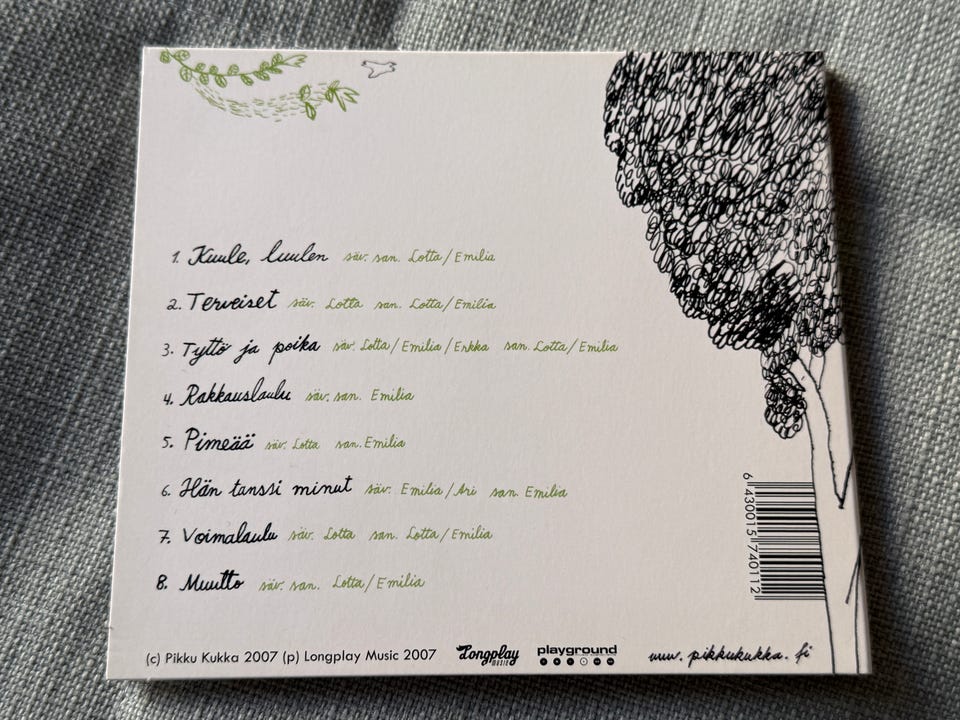 1. Kuule, luulen säv. san. Lotta/Emilia
2. Terveiset säv. Lotta san. Lotta/Emilia
3. Tyttö ja poika säv. Lotta/Emilia/Erkka san. Lotta/Emilia
4. Rakkauslaulu säv. san. Emilia
5. Pimeää säv. Lotta san. Emilia
6. Hän tanssi minut säv. Emilia/Ari san. Emilia
7. Voimalaulu säv. Lotta san. Lotta/Emilia
8. Muutto säv. san. Lotta/Emilia
6 430015 740112
(c) Pikku Kukka 2007 (p) Longplay Music 2007 Longplay MUSIC playground www.pikkukukka.fi